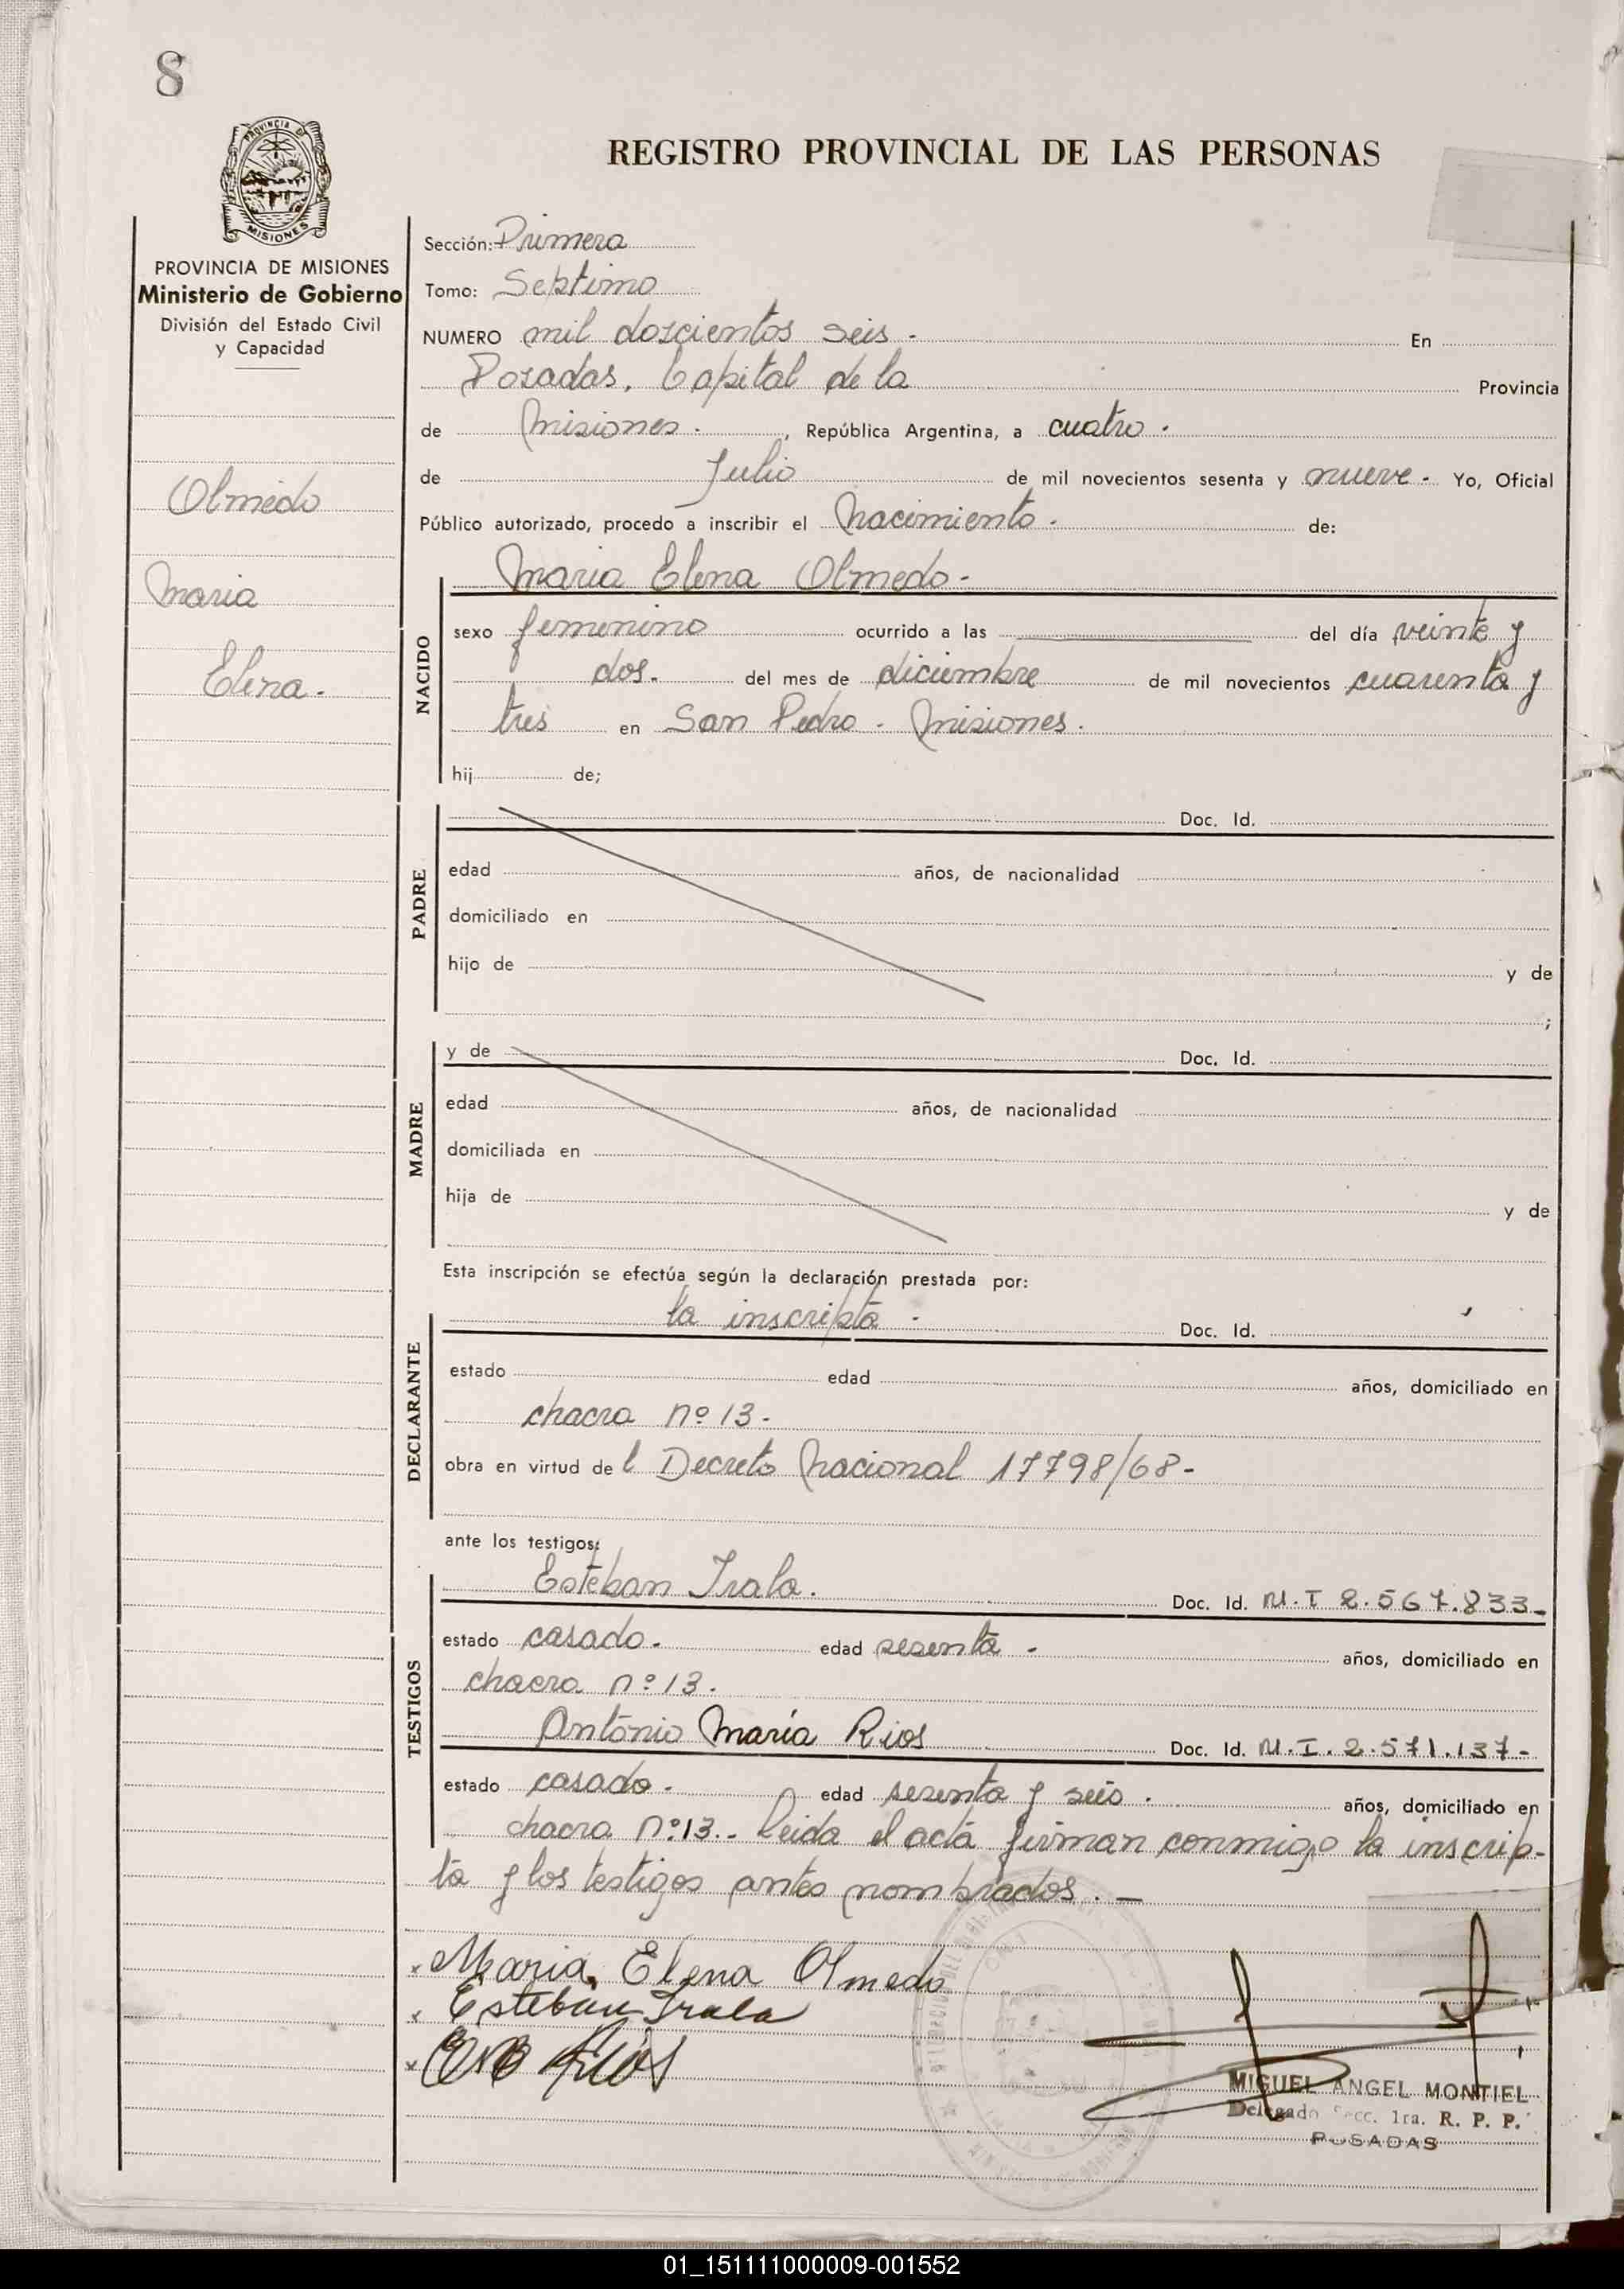 8
PROVINCIA DE
MISIONES
REGISTRO PROVINCIAL DE LAS PERSONAS
PROVINCIA DE MISIONES
Ministerio de Gobierno
División del Estado Civil
y Capacidad
Olmedo
Maria
Elena.
Sección: Primera
Tomo: Septimo
NUMERO mil doscientos seis. En
Posadas, Capital de la Provincia
de Misiones. , República Argentina, a cuatro.
de Julio de mil novecientos sesenta y nueve. Yo, Oficial
Público autorizado, procedo a inscribir el Nacimiento. de:
Maria Elena Olmedo-
NACIDO
sexo femenino ocurrido a las del día veinte y
dos. del mes de diciembre de mil novecientos cuarenta y
tres en San Pedro - Misiones.
hij de;
PADRE
Doc. Id.
edad años, de nacionalidad
domiciliado en
hijo de y de
;
MADRE
y de Doc. Id.
edad años, de nacionalidad
domiciliada en
hija de y de
Esta inscripción se efectúa según la declaración prestada por:
DECLARANTE
la inscripta. Doc. Id.
estado edad años, domiciliado en
chacra nº 13-
obra en virtud de l Decreto Nacional 17798/68-
ante los testigos:
TESTIGOS
Esteban Irala. Doc. Id. M.I 2.567.833-
estado casado. edad sesenta - años, domiciliado en
chacra nº 13.
Antonio María Rios Doc. Id. M.I. 2.571.137-
estado casado. edad sesenta y seis. años, domiciliado en
chacra nº 13.- Leida el acta firman conmigo la inscrip-
ta y los testigos antes nombrados. -
Maria Elena Olmedo
Esteban Irala
Rios
MIGUEL ANGEL MONTIEL
Delegado Secc. 1ra. R. P. P.
POSADAS
01_151111000009-001552